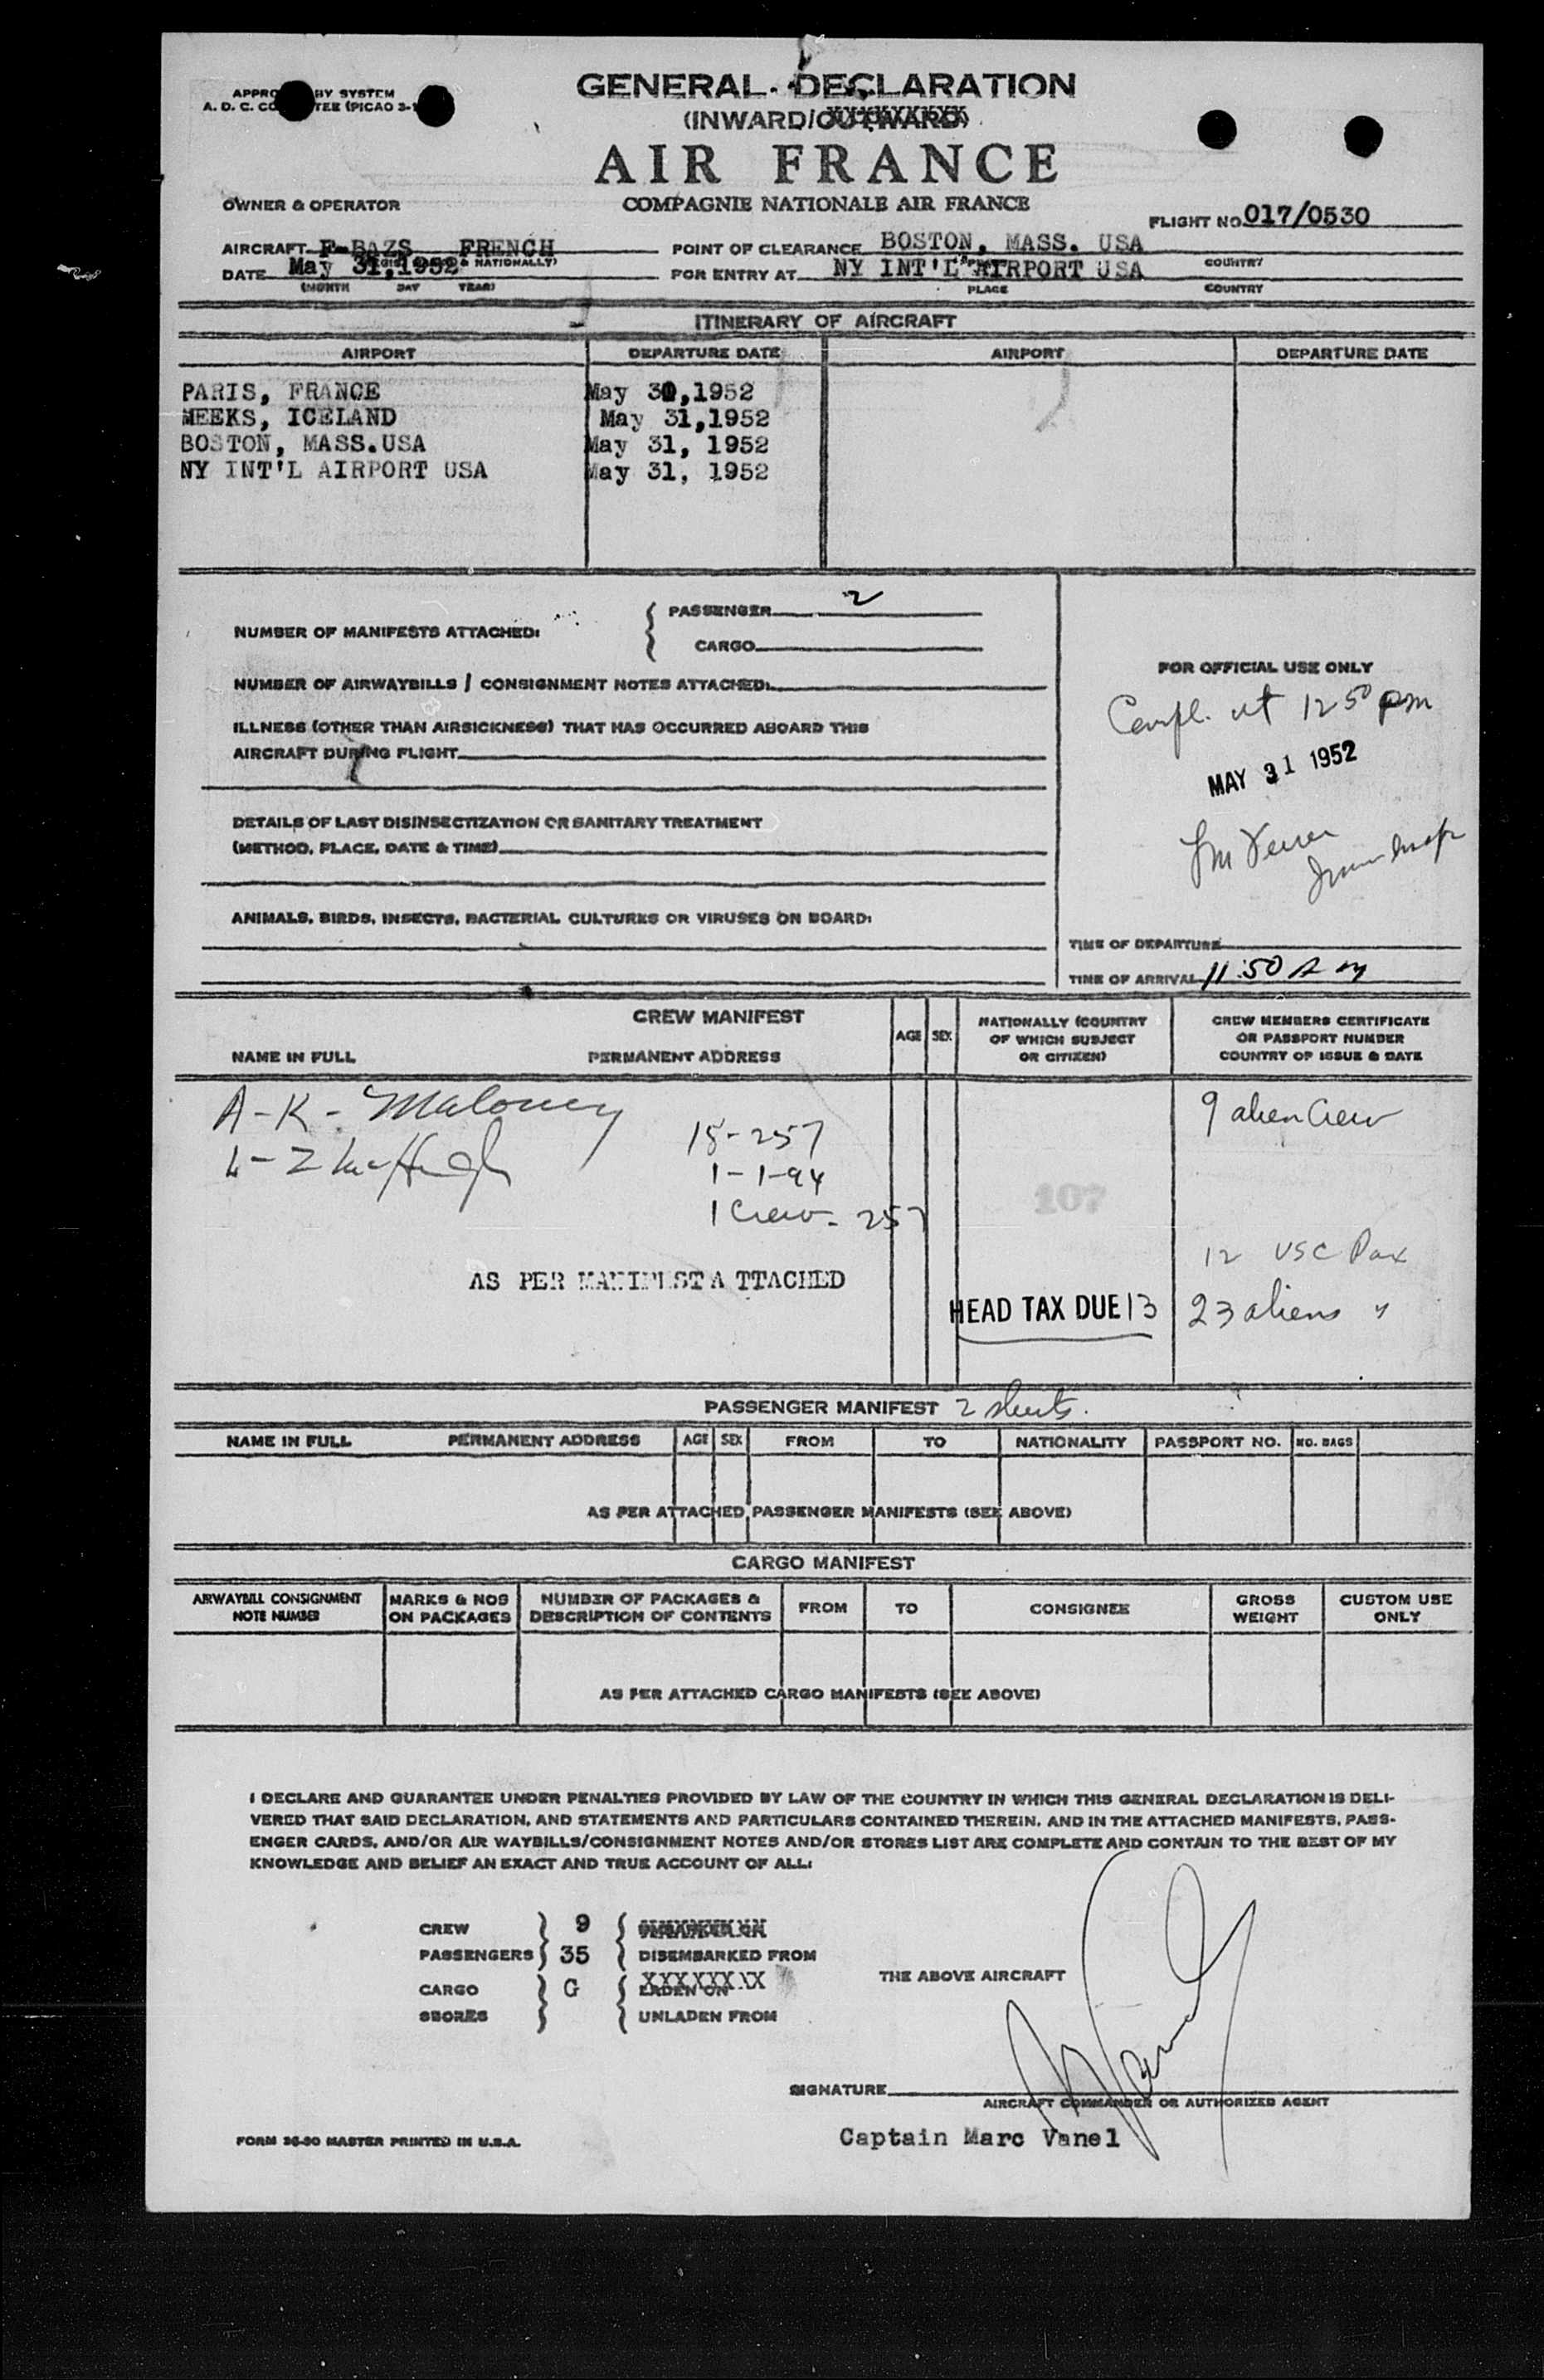 GENERAL DECLARATION
(INWARD/OUTWARD)
AIR FRANCE
COMPAGNIE NATIONALE AIR FRANCE
OWNER & OPERATOR
FLIGHT NO 017/0530
AIRCRAFT F-BAZS FRENCH
& NATIONALLY)
POINT OF CLEARANCE BOSTON, MASS. USA
COUNTRY
DATE May 31,1952
(MONTH DAY YEAR)
FOR ENTRY AT NY INT'L AIRPORT USA
PLACE COUNTRY
ITINERARY OF AIRCRAFT
AIRPORT DEPARTURE DATE AIRPORT DEPARTURE DATE
PARIS, FRANCE May 30,1952
MEEKS, ICELAND May 31,1952
BOSTON, MASS.USA May 31, 1952
NY INT'L AIRPORT USA May 31, 1952
NUMBER OF MANIFESTS ATTACHED: { PASSENGER 2
CARGO
NUMBER OF AIRWAYBILLS / CONSIGNMENT NOTES ATTACHED:
ILLNESS (OTHER THAN AIRSICKNESS) THAT HAS OCCURRED ABOARD THIS
AIRCRAFT DURING FLIGHT
DETAILS OF LAST DISINSECTIZATION OR SANITARY TREATMENT
(METHOD, PLACE, DATE & TIME)
ANIMALS, BIRDS, INSECTS, BACTERIAL CULTURES OR VIRUSES ON BOARD:
FOR OFFICIAL USE ONLY
Compl. at 12 50 pm
MAY 31 1952
TIME OF DEPARTURE
TIME OF ARRIVAL 11:50 A m
CREW MANIFEST
NAME IN FULL PERMANENT ADDRESS AGE SEX
NATIONALLY (COUNTRY
OF WHICH SUBJECT
OR CITIZEN)
CREW MEMBERS CERTIFICATE
OR PASSPORT NUMBER
COUNTRY OF ISSUE & DATE
A-K- Maloney
18-257
1-1-94
1 Crew- 257
9 alien Crew
107
12 USC Pax
AS PER MANIFEST A TTACHED
HEAD TAX DUE 13
23 aliens "
PASSENGER MANIFEST 2 sheets.
NAME IN FULL PERMANENT ADDRESS AGE SEX FROM TO NATIONALITY PASSPORT NO. NO. BAGS
AS PER ATTACHED PASSENGER MANIFESTS (SEE ABOVE)
CARGO MANIFEST
AIRWAYBILL CONSIGNMENT
NOTE NUMBER
MARKS & NOS
ON PACKAGES
NUMBER OF PACKAGES &
DESCRIPTION OF CONTENTS
FROM TO CONSIGNEE
GROSS
WEIGHT
CUSTOM USE
ONLY
AS PER ATTACHED CARGO MANIFESTS (SEE ABOVE)
I DECLARE AND GUARANTEE UNDER PENALTIES PROVIDED BY LAW OF THE COUNTRY IN WHICH THIS GENERAL DECLARATION IS DELI-
VERED THAT SAID DECLARATION, AND STATEMENTS AND PARTICULARS CONTAINED THEREIN, AND IN THE ATTACHED MANIFESTS, PASS-
ENGER CARDS, AND/OR AIR WAYBILLS/CONSIGNMENT NOTES AND/OR STORES LIST ARE COMPLETE AND CONTAIN TO THE BEST OF MY
KNOWLEDGE AND BELIEF AN EXACT AND TRUE ACCOUNT OF ALL:
CREW } 9 { EMBARKED ON
PASSENGERS } 35 { DISEMBARKED FROM
THE ABOVE AIRCRAFT
CARGO } G { LADEN ON
SBORES } { UNLADEN FROM
SIGNATURE
AIRCRAFT COMMANDER OR AUTHORIZED AGENT
Captain Marc Vanel
FORM 36-60 MASTER PRINTED IN U.S.A.